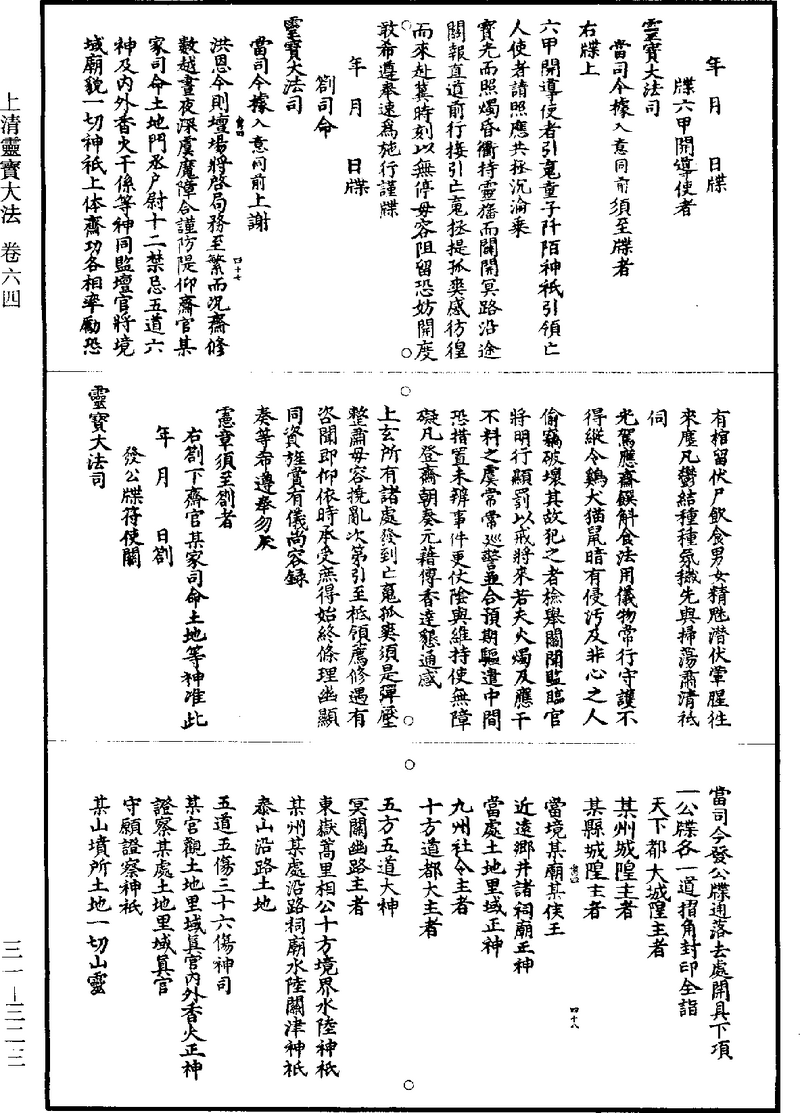 上清靈寶大法 卷六四
三一—三二三
年 月 日牒
牒六甲開導使者
靈寶大法司
當司今據入意同前須至牒者
右牒上
六甲開導使者引䰟童子阡陌神祇引領亡
人使者請照應共拯沉淪乘
寶光而照燭昏衢持靈旛而關開冥路沿途
關報直道前行接引亡䰟拯提孤爽感彷徨
而來赴冀時刻以無停毋容阻留恐妨開度
敢希遵奉速為施行謹牒
年 月 日牒
劄司命
靈寶大法司
當司今據入意同前上謝
洪恩今則壇場將啓局務至繁而況齋修
數越晝夜深虞魔障合謹防隄仰齋官某
家司命土地門丞户尉十二禁忌五道六
神及内外香火干係等神同監壇官將境
域廟貌一切神祇上体齋功各相率勵恐
四十七
有棺留伏尸飲食男女精魅潜伏葷腥往
來塵凡鬱結種種氛穢先與掃蕩肅清祗
伺
光駕應齋饌斛食法用儀物常行守護不
得縱令鷄犬猫鼠暗有侵汚及非心之人
偷竊破壞其故犯之者撿舉關聞監臨官
將明行顯罰以戒將來若夫火燭及應干
不料之虞常常巡警並合預期驅遣中間
恐措置未辨事件更仗陰與維持使無障
礙凡登齋朝奏元藉傳香達懇通感
上玄所有諸處發到亡䰟孤爽須是彈壓
整肅毋容撓亂次第引至祗領薦修遇有
咨聞即仰依時承受庶得始終條理幽顯
同資旌賞有儀尚容録
奏等希遵奉勿戾
憲章須至劄者
右劄下齋官某家司命土地等神准此
年 月 日劄
發公牒符使關
靈寶大法司
當司今發公牒逈落去處開具下項
一公牒各一道摺角封印全詣
天下都大城隍主者
某州城隍主者
某縣城隍主者
當境某廟某侯王
近遠鄉井諸祠廟正神
當處土地里域正神
九州社令主者
十方道都大主者
四十八
五方五道大神
冥關幽路主者
東嶽蒿里相公十方境界水陸神祇
某州某處沿路祠廟水陸關津神祇
泰山沿路土地
五道五傷三十六傷神司
某宫觀土地里域真官内外香火正神
證察某處土地里域真官
守願證察神祇
某山墳所土地一切山靈